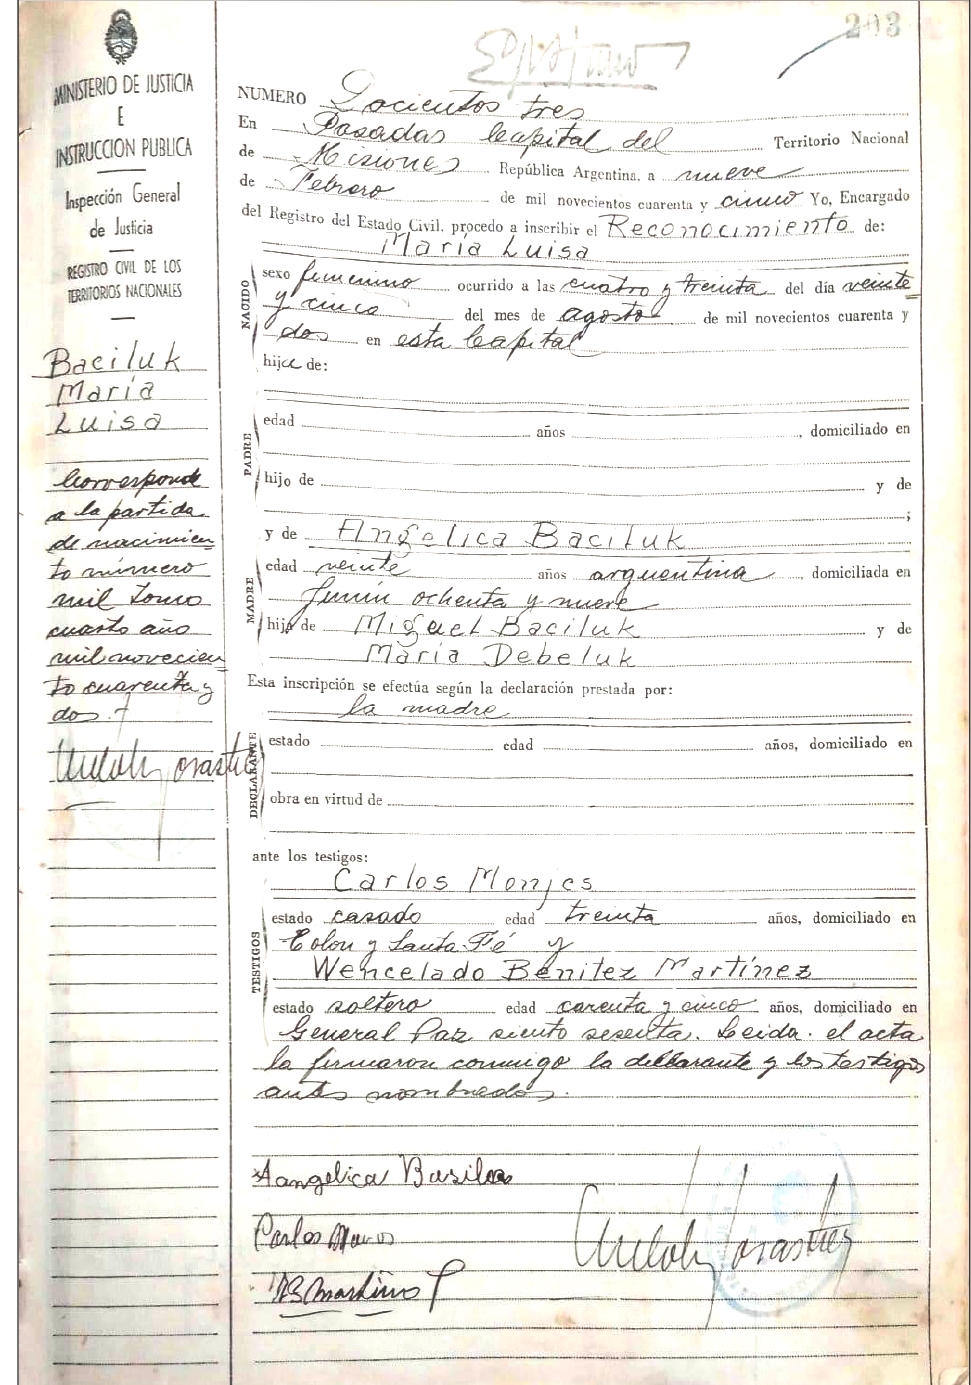 203
MINISTERIO DE JUSTICIA
E
INSTRUCCION PUBLICA
Inspección General
de Justicia
REGISTRO CIVIL DE LOS
TERRITORIOS NACIONALES
Baciluk
María
Luisa
Corresponde
a la partida
de nacimien
to número
mil tomo
cuarto año
mil novecien
to cuarenta y
dos.-
NUMERO Docientos tres
En Posadas Capital del Territorio Nacional
de Misiones República Argentina, a nueve
de Febrero de mil novecientos cuarenta y cinco Yo, Encargado
del Registro del Estado Civil, procedo a inscribir el Reconocimiento de:
María Luisa
NACIDO
sexo femenino ocurrido a las cuatro y treinta del día veinte
y cinco del mes de agosto de mil novecientos cuarenta y
dos en esta Capital
hija de:
PADRE
edad años , domiciliado en
hijo de y de
;
y de Angélica Baciluk
MADRE
edad veinte años arguentina , domiciliada en
Junín ochenta y nueve
hija de Miguel Baciluk y de
María Debeluk
Esta inscripción se efectúa según la declaración prestada por:
la madre
DECLARANTE
estado edad años, domiciliado en
obra en virtud de
ante los testigos:
Carlos Monjes
TESTIGOS
estado casado edad treinta años, domiciliado en
Colon y Santa Fé y
Wencelado Benitez Martínez
estado soltero edad carenta y cinco años, domiciliado en
General Paz siento sesenta. Leida el acta
la firmaron conmigo la declarante y los testigos
antes nombrados.
Aangelica
Carlos